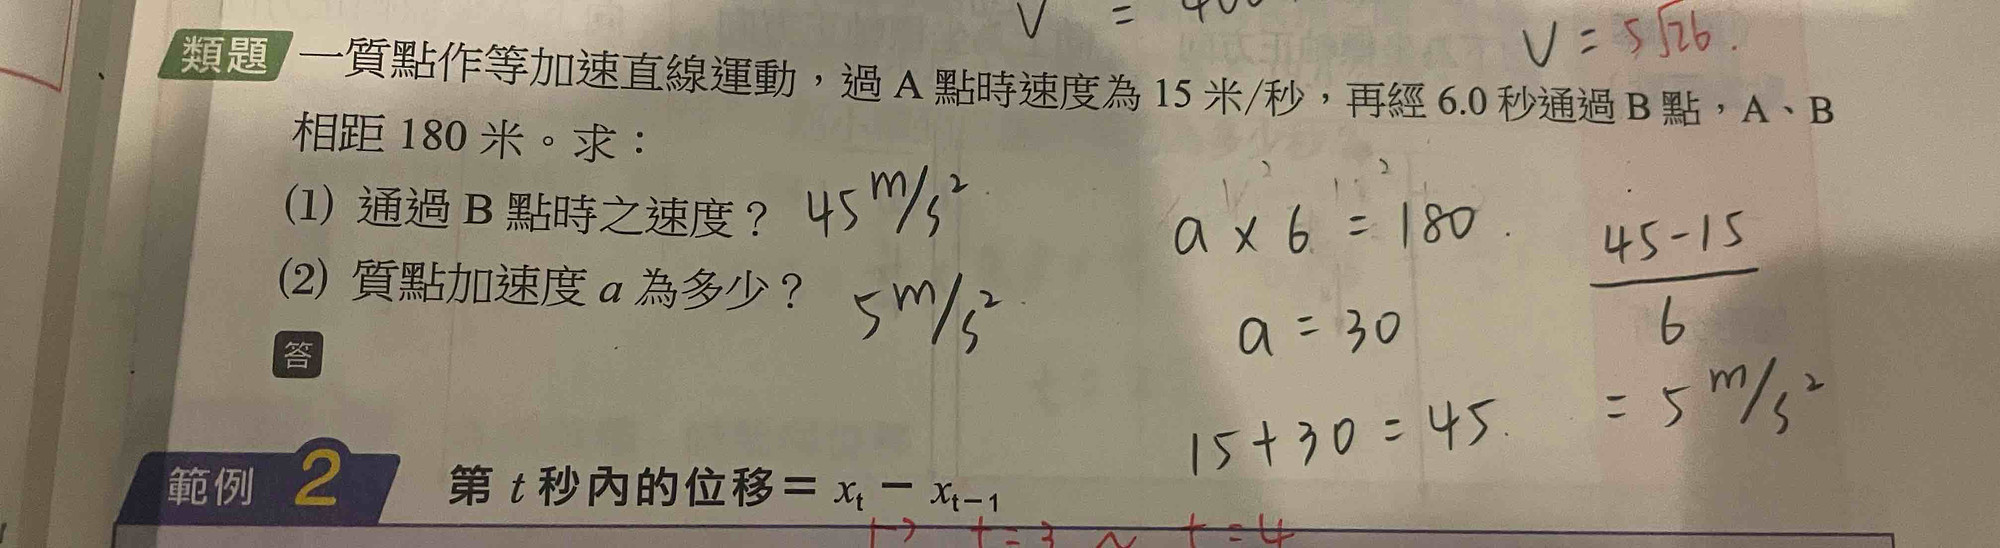 V = 400
V = 5√26.
類題 一質點作等加速直線運動，過 A 點時速度為 15 米/秒，再經 6.0 秒通過 B 點，A、B
相距 180 米。求：
(1) 通過 B 點時之速度？ 45 m/s²
(2) 質點加速度 a 為多少？ 5 m/s²
答
a × 6 = 180.
a = 30
15 + 30 = 45.
45-15
6
= 5 m/s²
範例 2 第 t 秒內的位移＝ xₜ － xₜ₋₁
t = 3 ~ t = 4